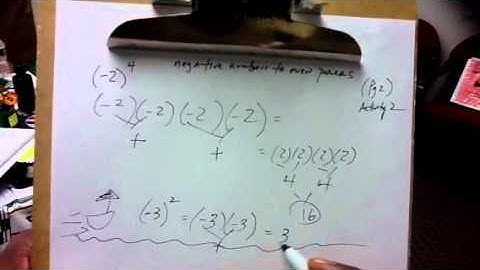 negative numbers to even powers
(-2)⁴
(Pg 2)
Activity 2
(-2)(-2)(-2)(-2) =
+ +
= (2)(2)(2)(2)
4 4
16
(-3)² = (-3)(-3) = 3
+